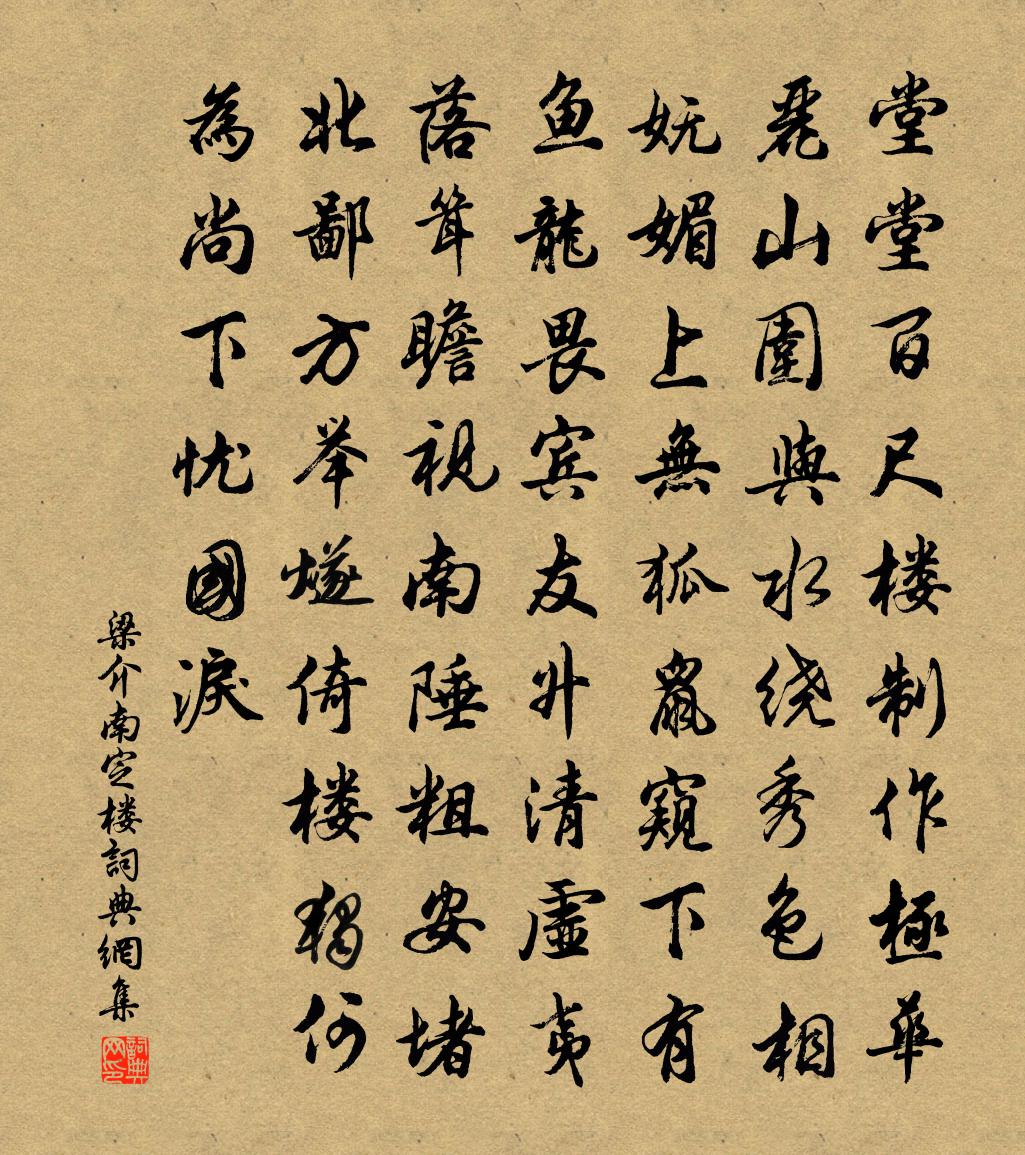 堂堂百尺楼制作極華
麗山圍與水绕秀色相
妩媚上無狐鼠窺下有
鱼龍畏宾友升清虛夷
落耸瞻視南陲粗安堵
北鄙方举燧倚楼獨何
為尚下忧國淚
梁介南定楼詞典網集
詞典网印